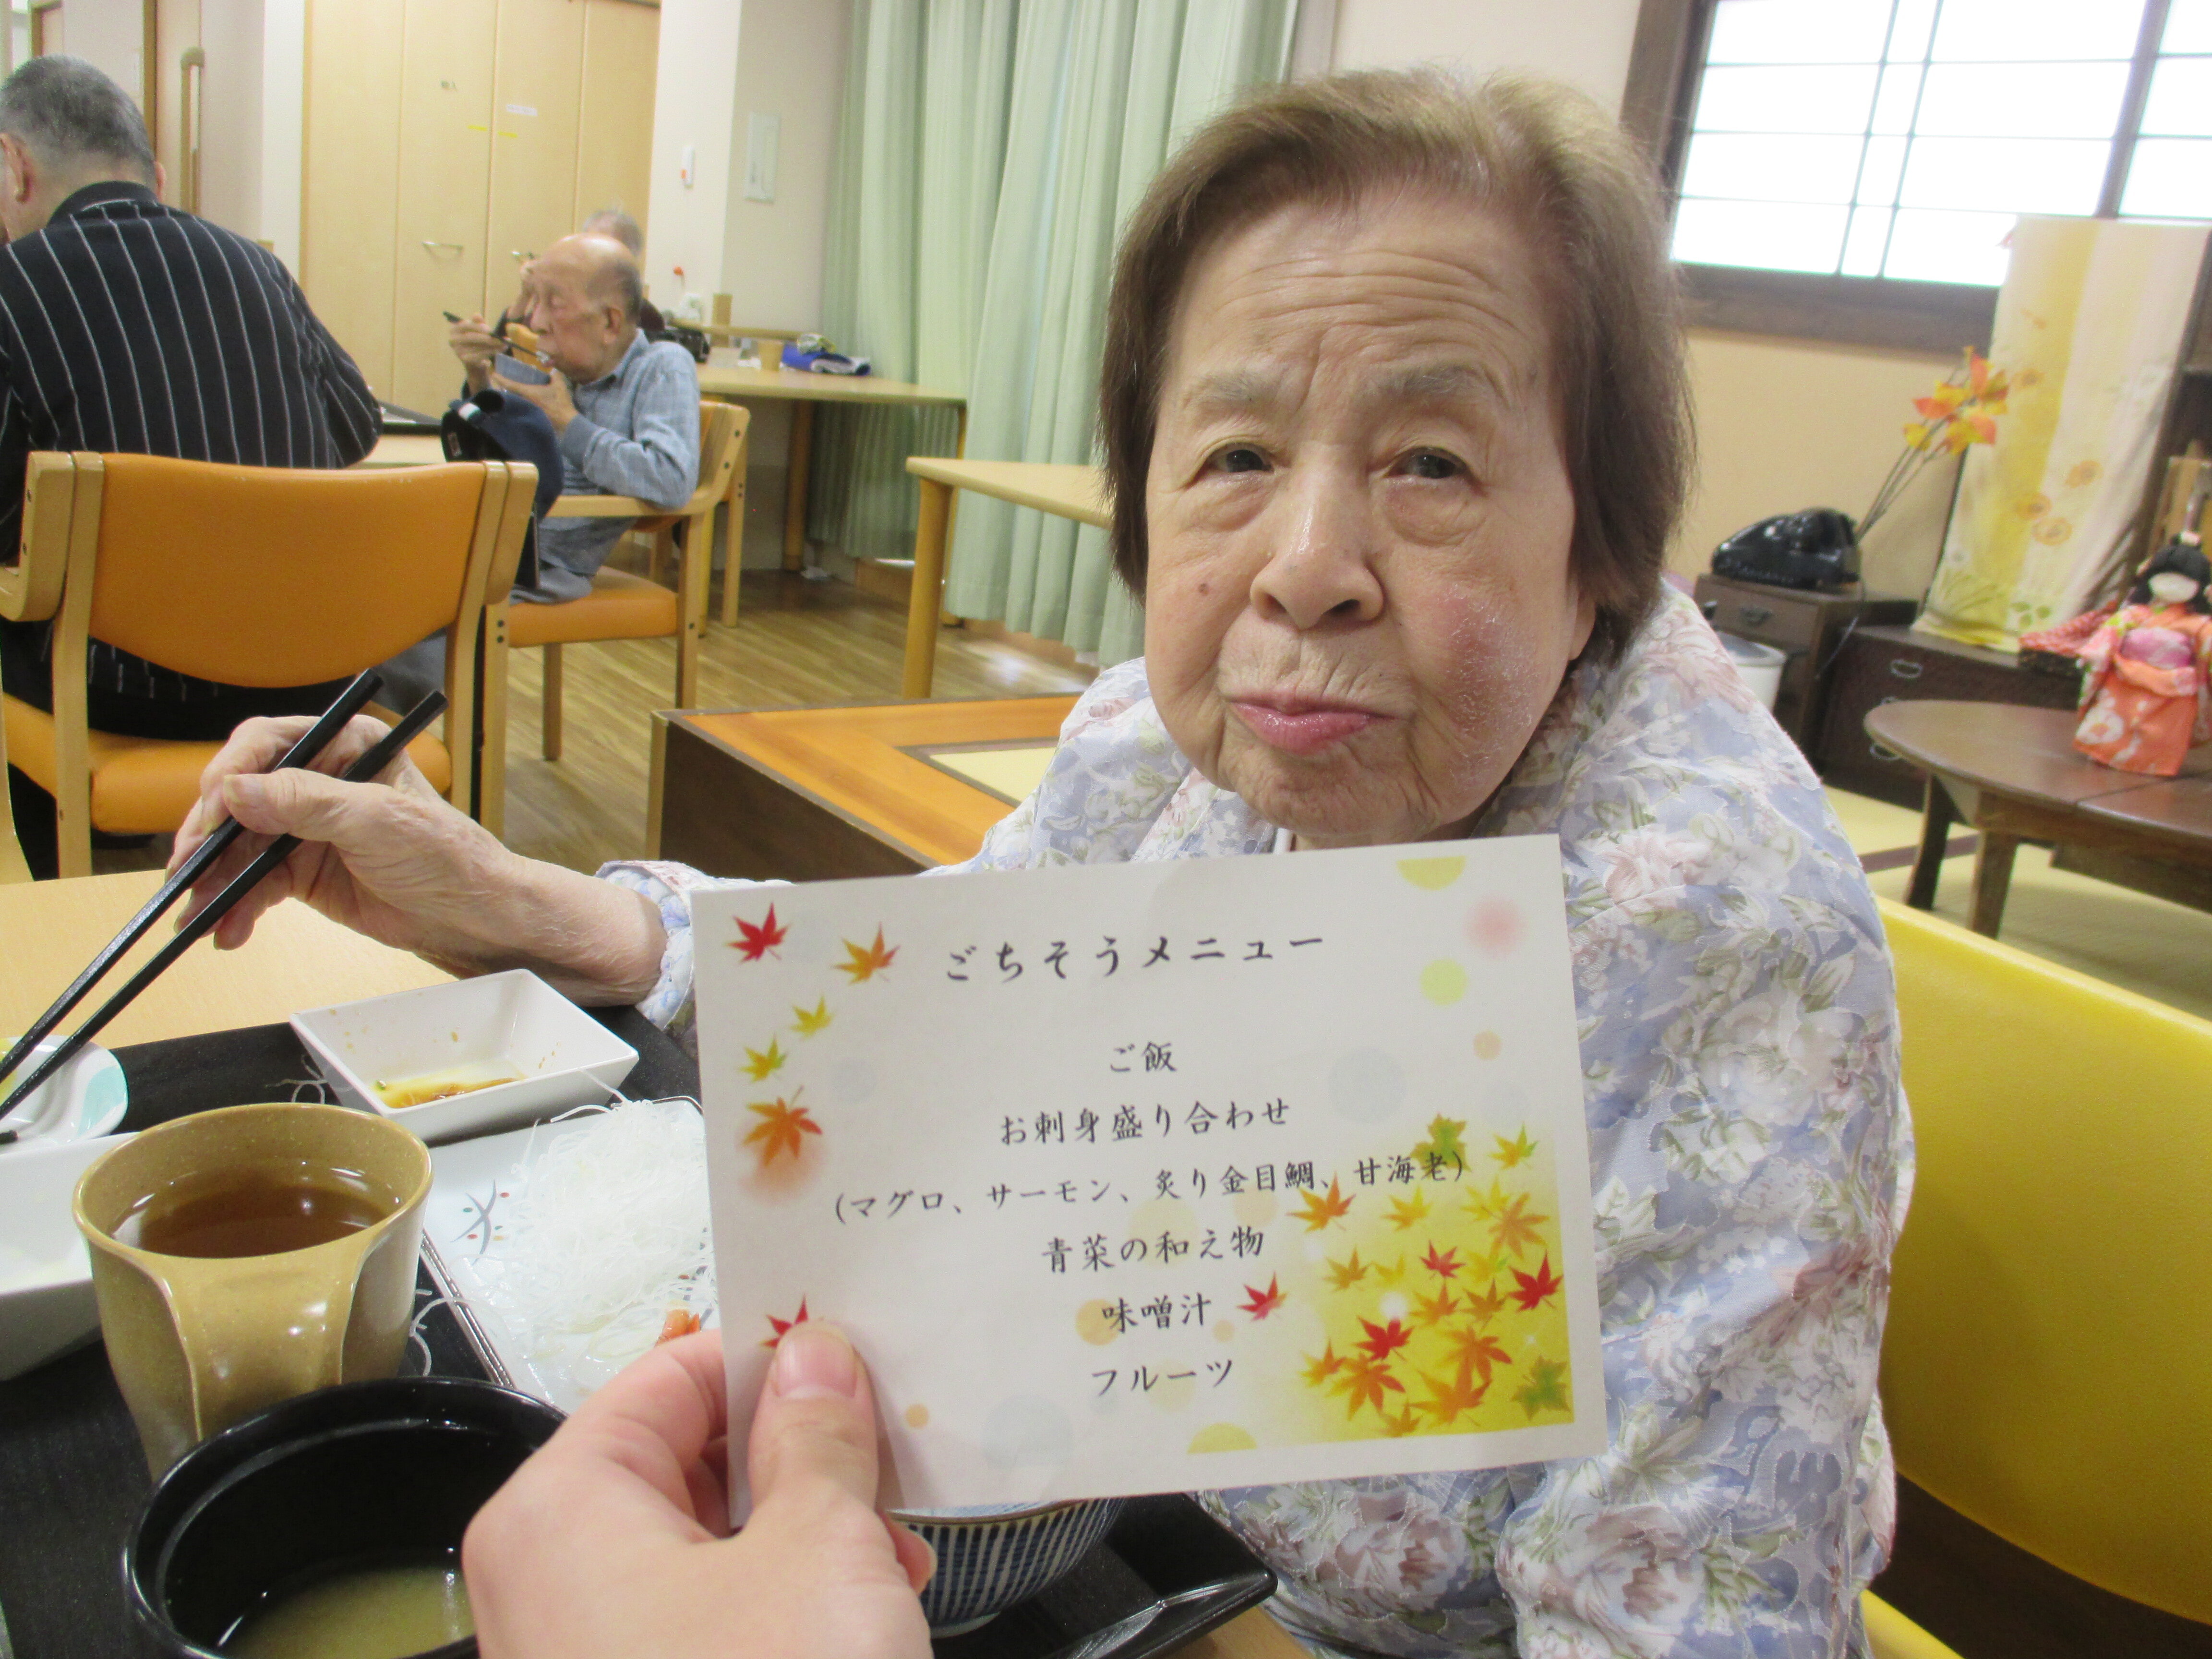 ごちそうメニュー
ご飯
お刺身盛り合わせ
(マグロ、サーモン、炙り金目鯛、甘海老)
青菜の和え物
味噌汁
フルーツ